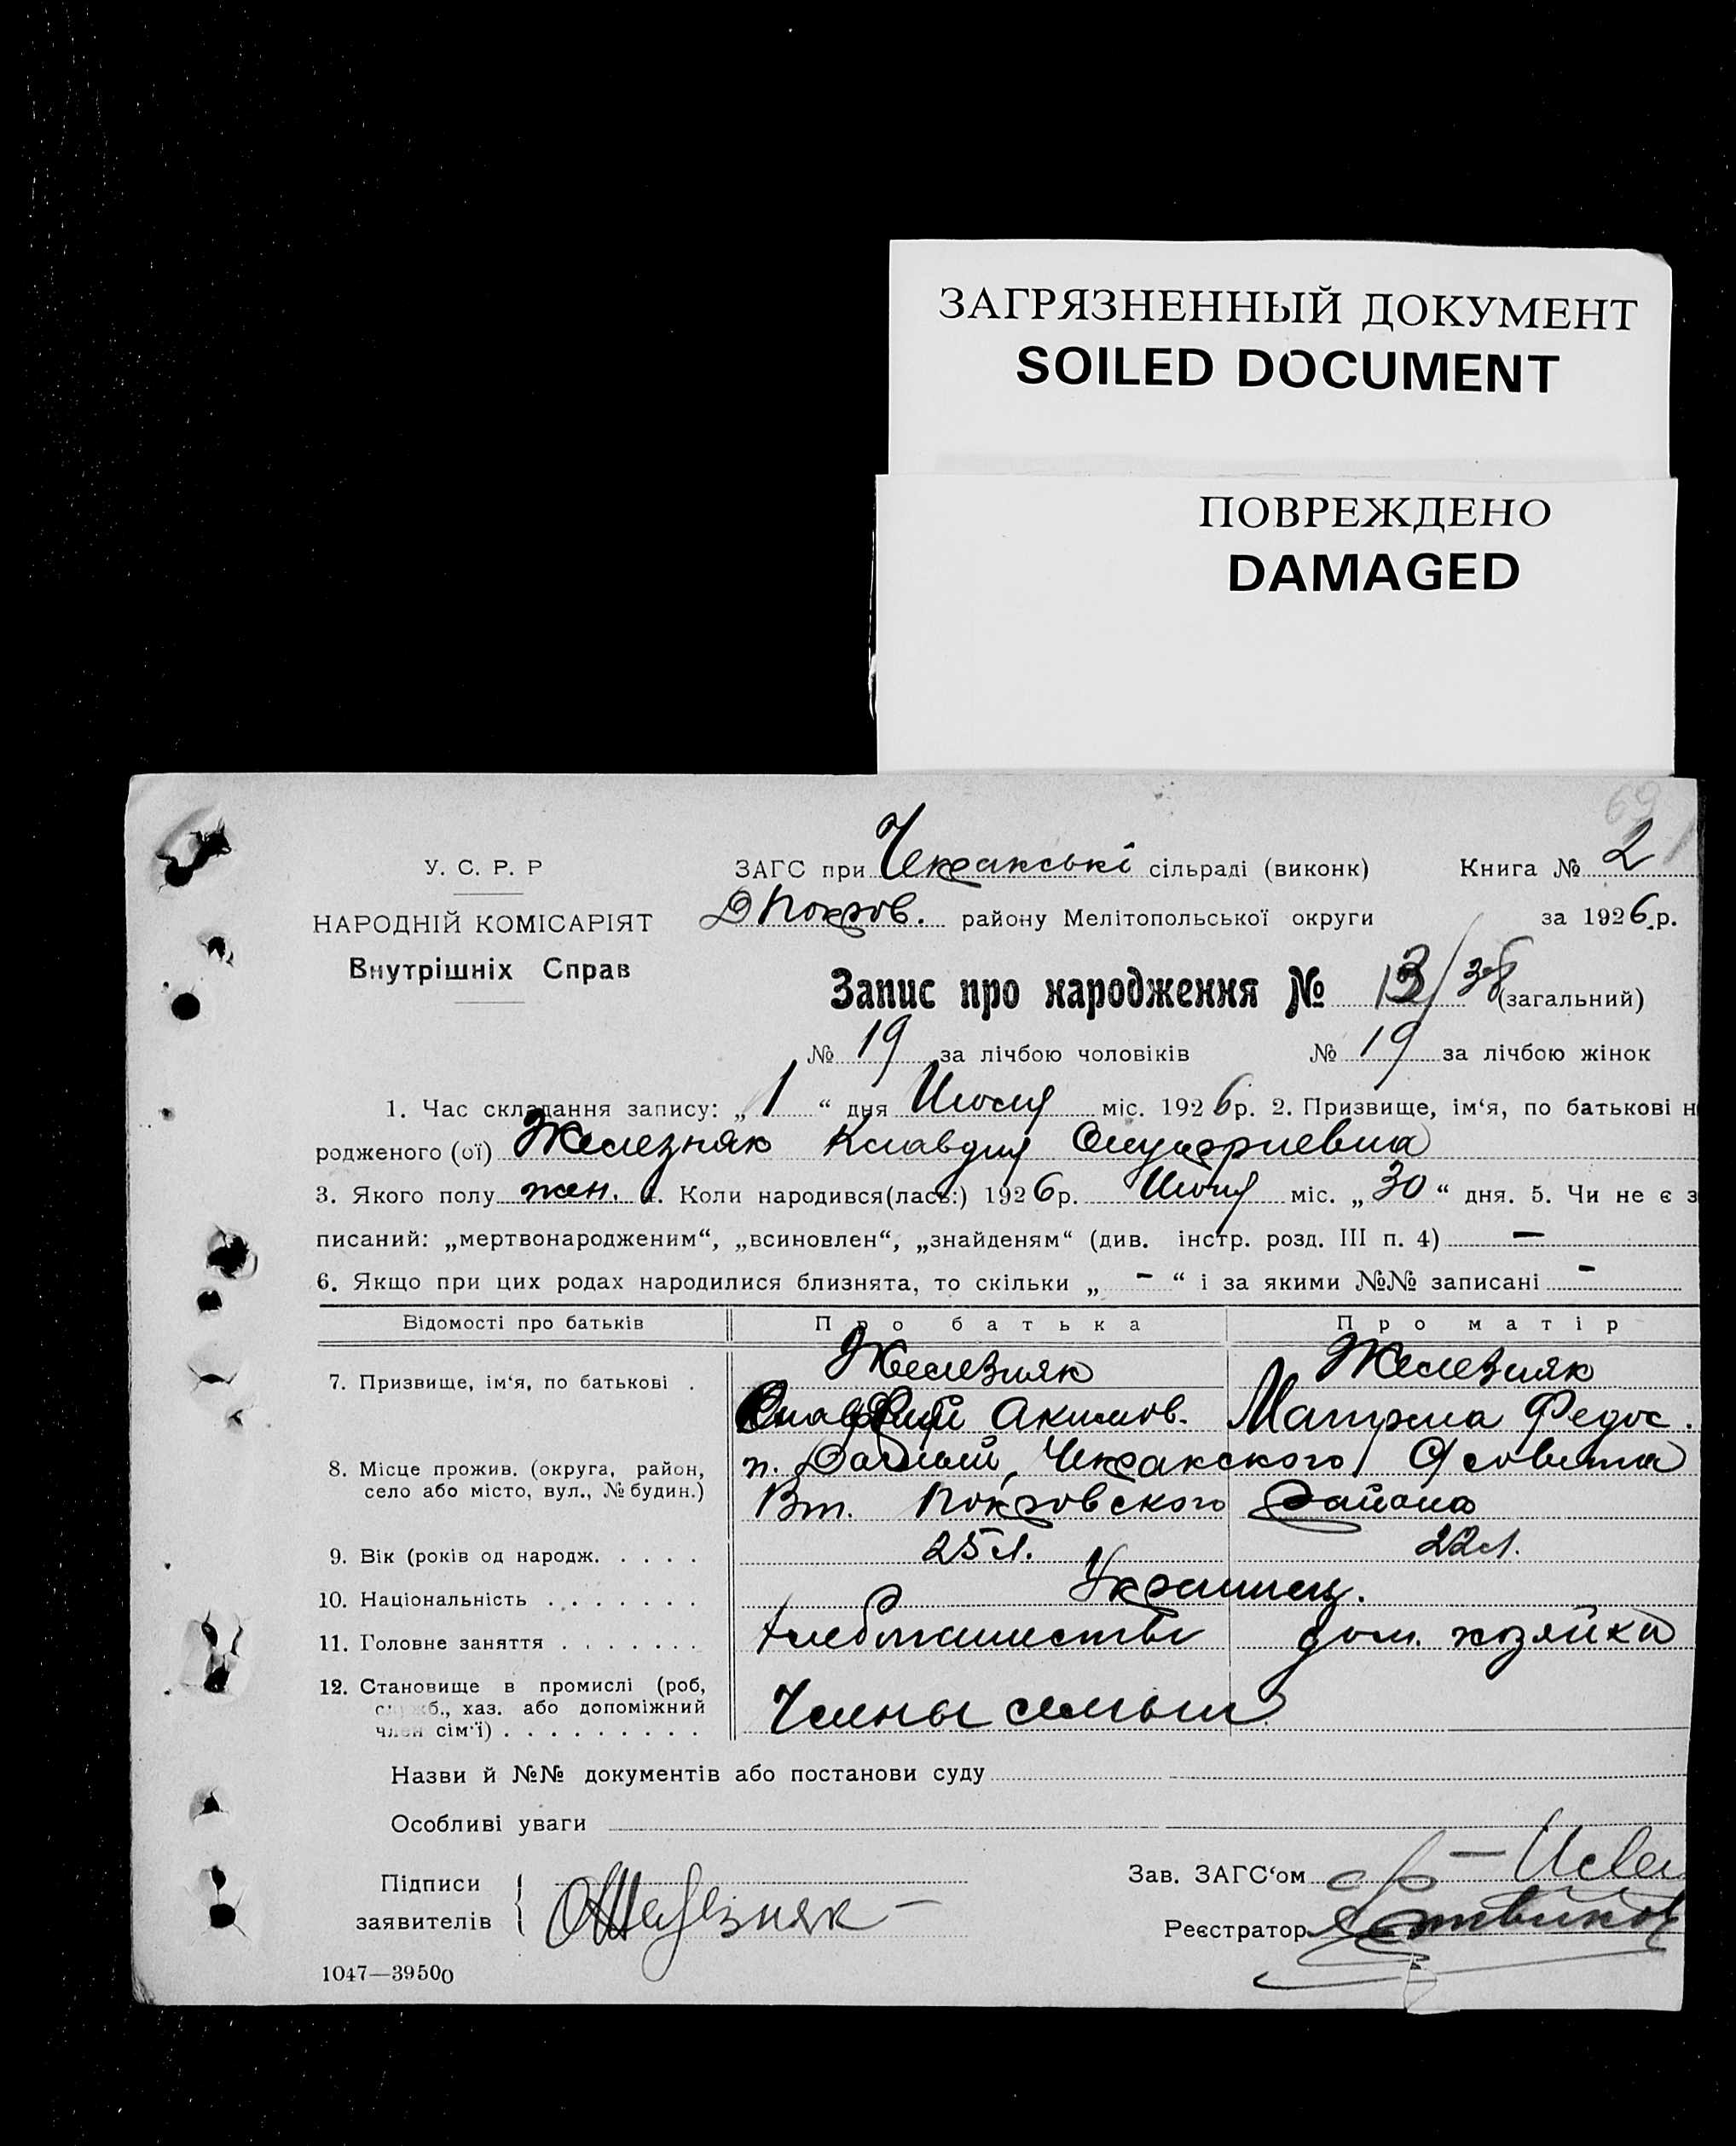 ЗАГРЯЗНЕННЫЙ ДОКУМЕНТ
SOILED DOCUMENT
ПОВРЕЖДЕНО
DAMAGED
У. С. Р. Р
НАРОДНІЙ КОМІСАРІЯТ
Внутрішніх Справ
ЗАГС при Чекракські сільраді (виконк) Книга № 2
Покров. району Мелітопольської округи за 1926 р.
Запис про народження № (загальний)
№ 19 за лічбою чоловіків № 19 за лічбою жінок
1. Час складання запису: „ 1 “ дня міс. 1926 р. 2. Призвище, ім‘я, по батькові н
родженого (ої) Железняк Клавдия Онуфриевна
3. Якого полу жен. 4. Коли народився(лась:) 1926 р. міс. „ 30 “ дня. 5. Чи не є з
писаний: „мертвонародженим“, „всиновлен“, „знайденям“ (див. інстр. розд. III п. 4) —
6. Якщо при цих родах народилися близнята, то скільки „ - “ і за якими №№ записані -
Відомості про батьків Про батька Про матір
7. Призвище, ім‘я, по батькові . Железняк Железняк
Акимов. Матрена Федос.
8. Місце прожив. (округа, район, п. Чекракского совета
село або місто, вул., № будин.) Вт. Покровского района
9. Вік (років од народж. . . . . 25 л. 22 л.
10. Національність . . . . . . . Украинец.
11. Головне заняття . . . . . . . хлебопашество дом. хозяйка
12. Становище в промислі (роб,
служб., хаз. або допоміжний Члены семьи
член сім‘ї) . . . . . . . . .
Назви й №№ документів або постанови суду
Особливі уваги
Підписи Зав. ЗАГС‘ом
заявителів Железняк Реєстратор
1047—39500